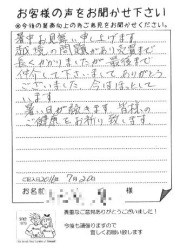 お客様の声をお聞かせ下さい
今後の業務向上の為ご意見をお聞かせください。
暑中お見舞い申し上げます
越境の問題があり完買まで
長くかかりましたが最後まで
仲介して下さいましてありがとう
ございました 今はほっとして
います。
暑い日が続きます 皆様の
ご健康をお祈り致します。
7月20日
お名前 様
貴重なご意見ありがとうございました！
今後も頑張りますので
宜しくお願い致します